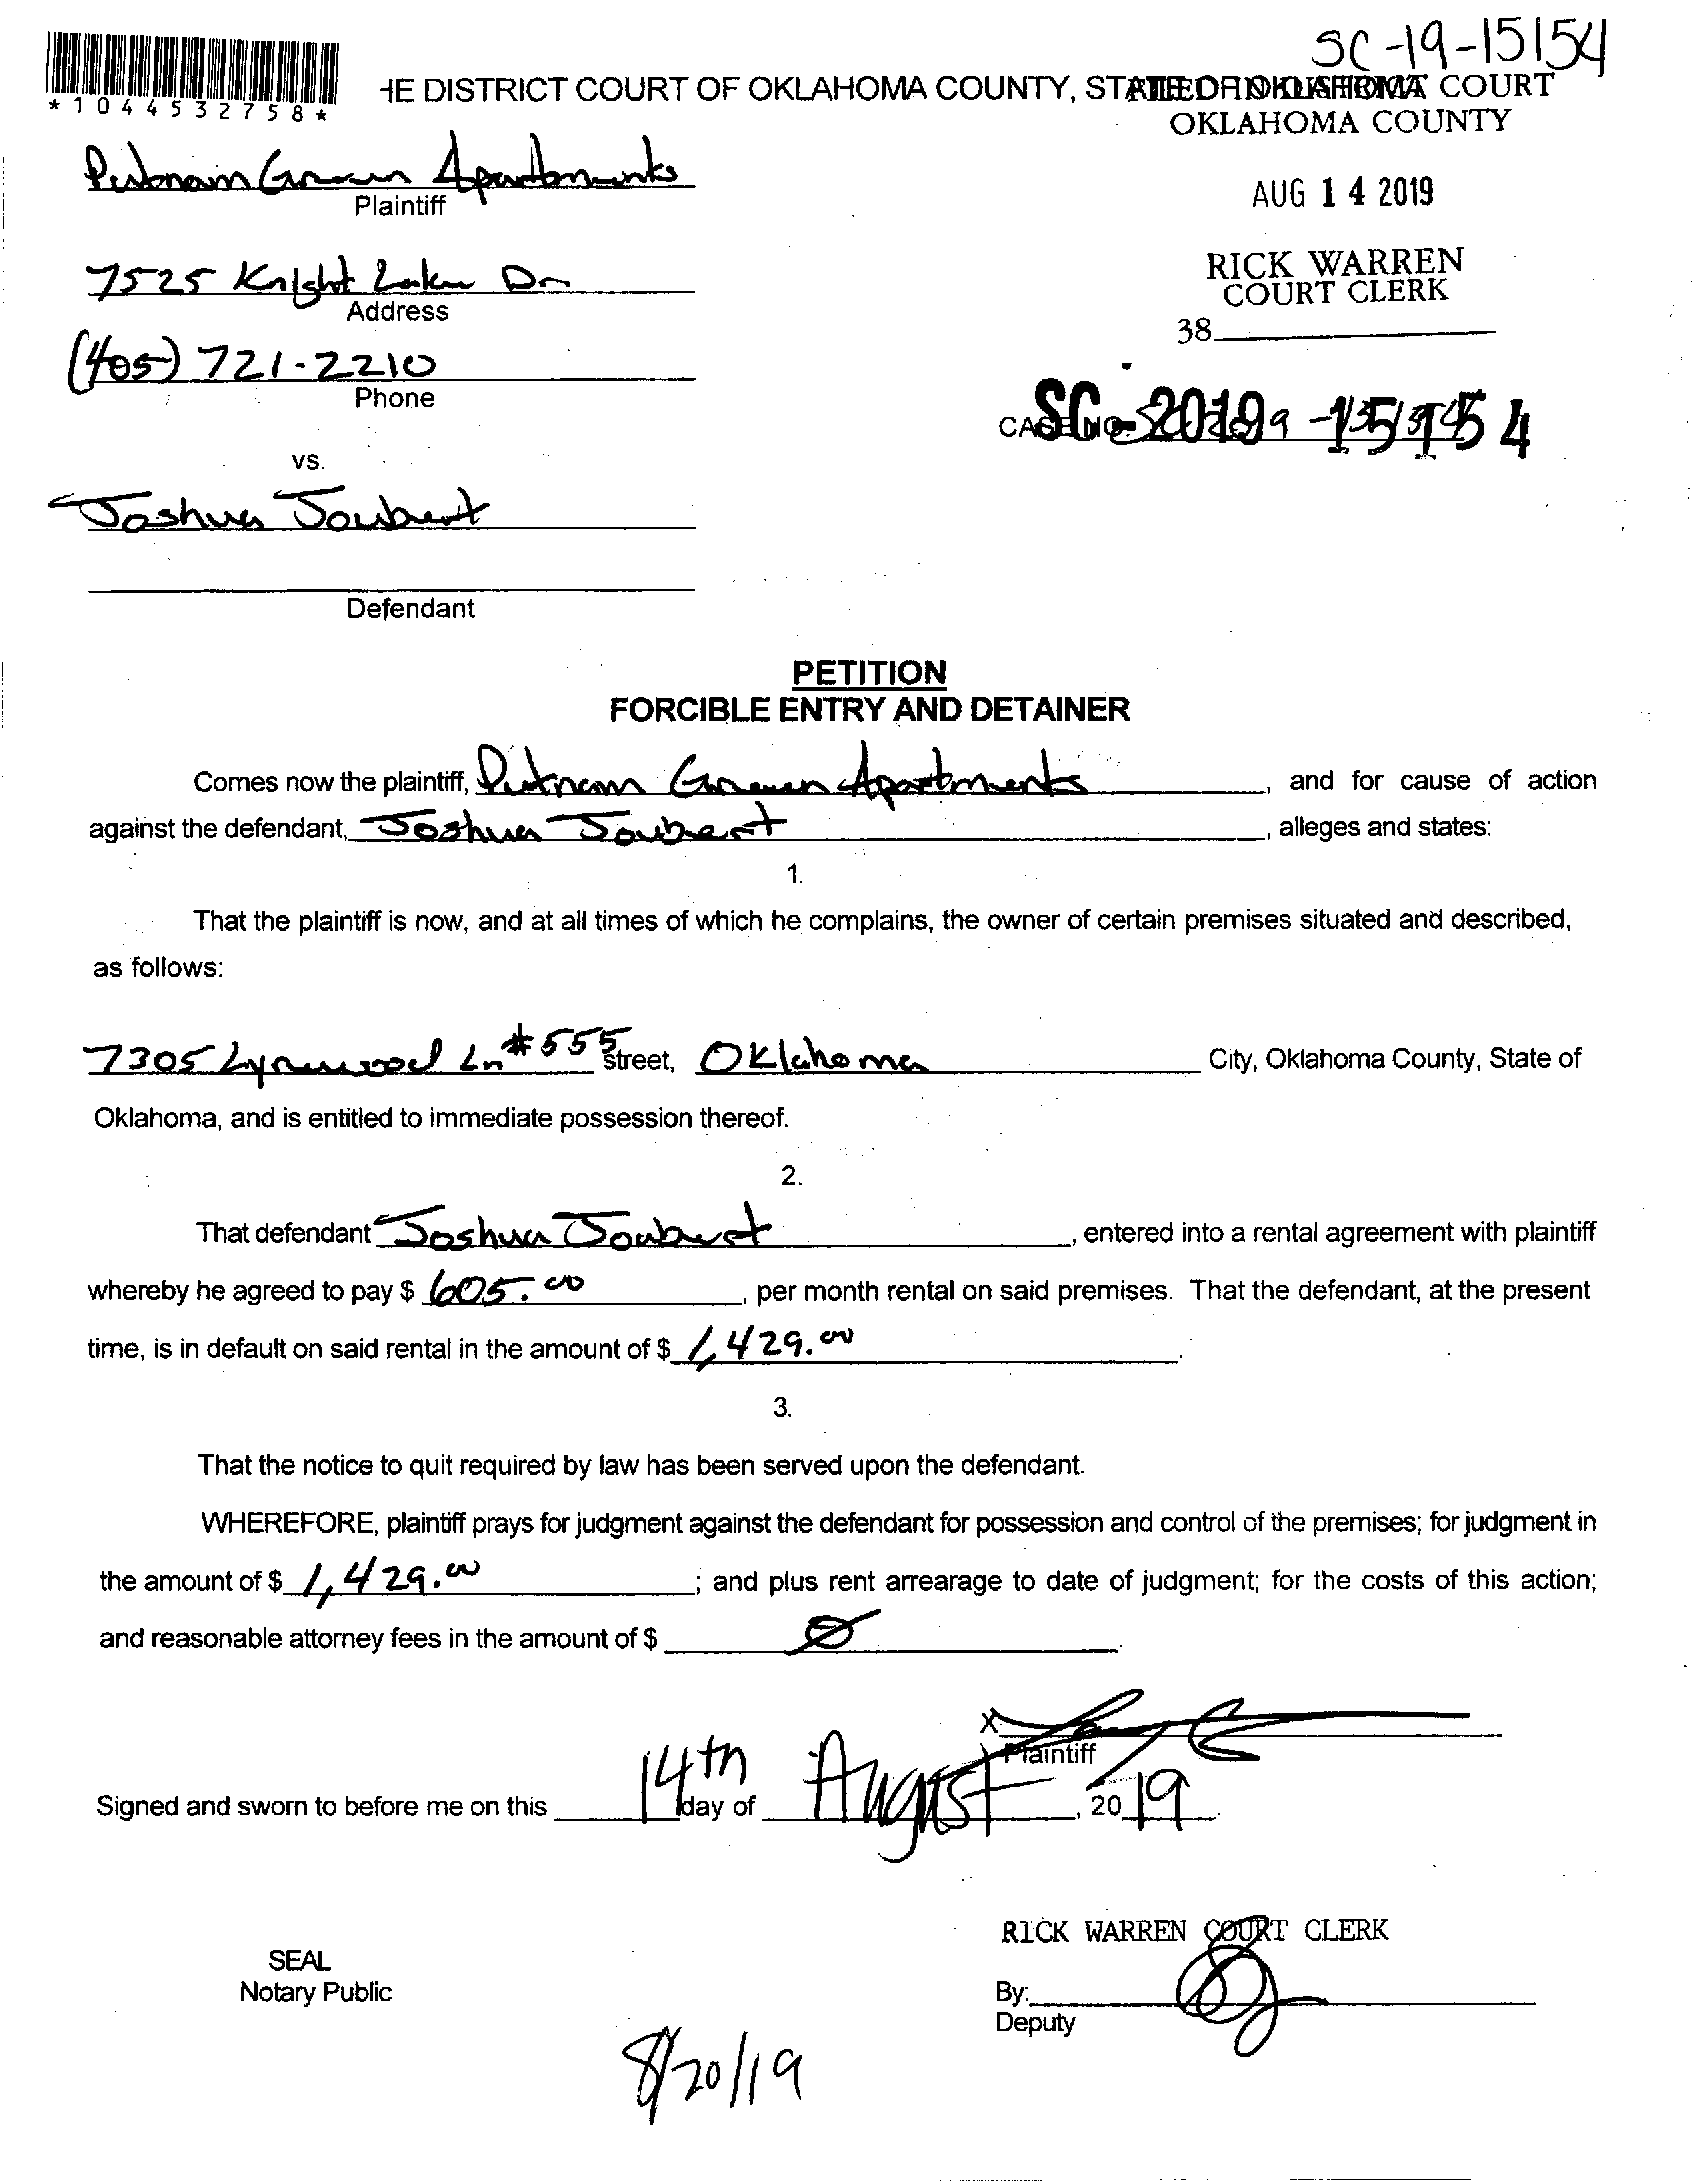 SC-19-15154
*1044532758*
HE DISTRICT COURT OF OKLAHOMA COUNTY, STATE OF OKLAHOMA
FILED IN DISTRICT COURT
OKLAHOMA COUNTY
Putnam Green Apartments
Plaintiff
AUG 14 2019
7525 Knight Lake Dr
Address
RICK WARREN
COURT CLERK
38
(405) 721-2210
Phone
CASE NO. SC-2019-15154
vs.
Joshua Joubert
Defendant
PETITION
FORCIBLE ENTRY AND DETAINER
Comes now the plaintiff, Putnam Green Apartments, and for cause of action
against the defendant, Joshua Joubert, alleges and states:
1.
That the plaintiff is now, and at all times of which he complains, the owner of certain premises situated and described,
as follows:
7305 Lynnwood Ln #555 Street, Oklahoma City, Oklahoma County, State of
Oklahoma, and is entitled to immediate possession thereof.
2.
That defendant Joshua Joubert, entered into a rental agreement with plaintiff
whereby he agreed to pay $ 605.00, per month rental on said premises. That the defendant, at the present
time, is in default on said rental in the amount of $ 1,429.00.
3.
That the notice to quit required by law has been served upon the defendant.
WHEREFORE, plaintiff prays for judgment against the defendant for possession and control of the premises; for judgment in
the amount of $ 1,429.00; and plus rent arrearage to date of judgment; for the costs of this action;
and reasonable attorney fees in the amount of $ Ø.
X
Plaintiff
Signed and sworn to before me on this 14th day of August, 2019.
RICK WARREN COURT CLERK
SEAL
Notary Public
By:
Deputy
8/20/19